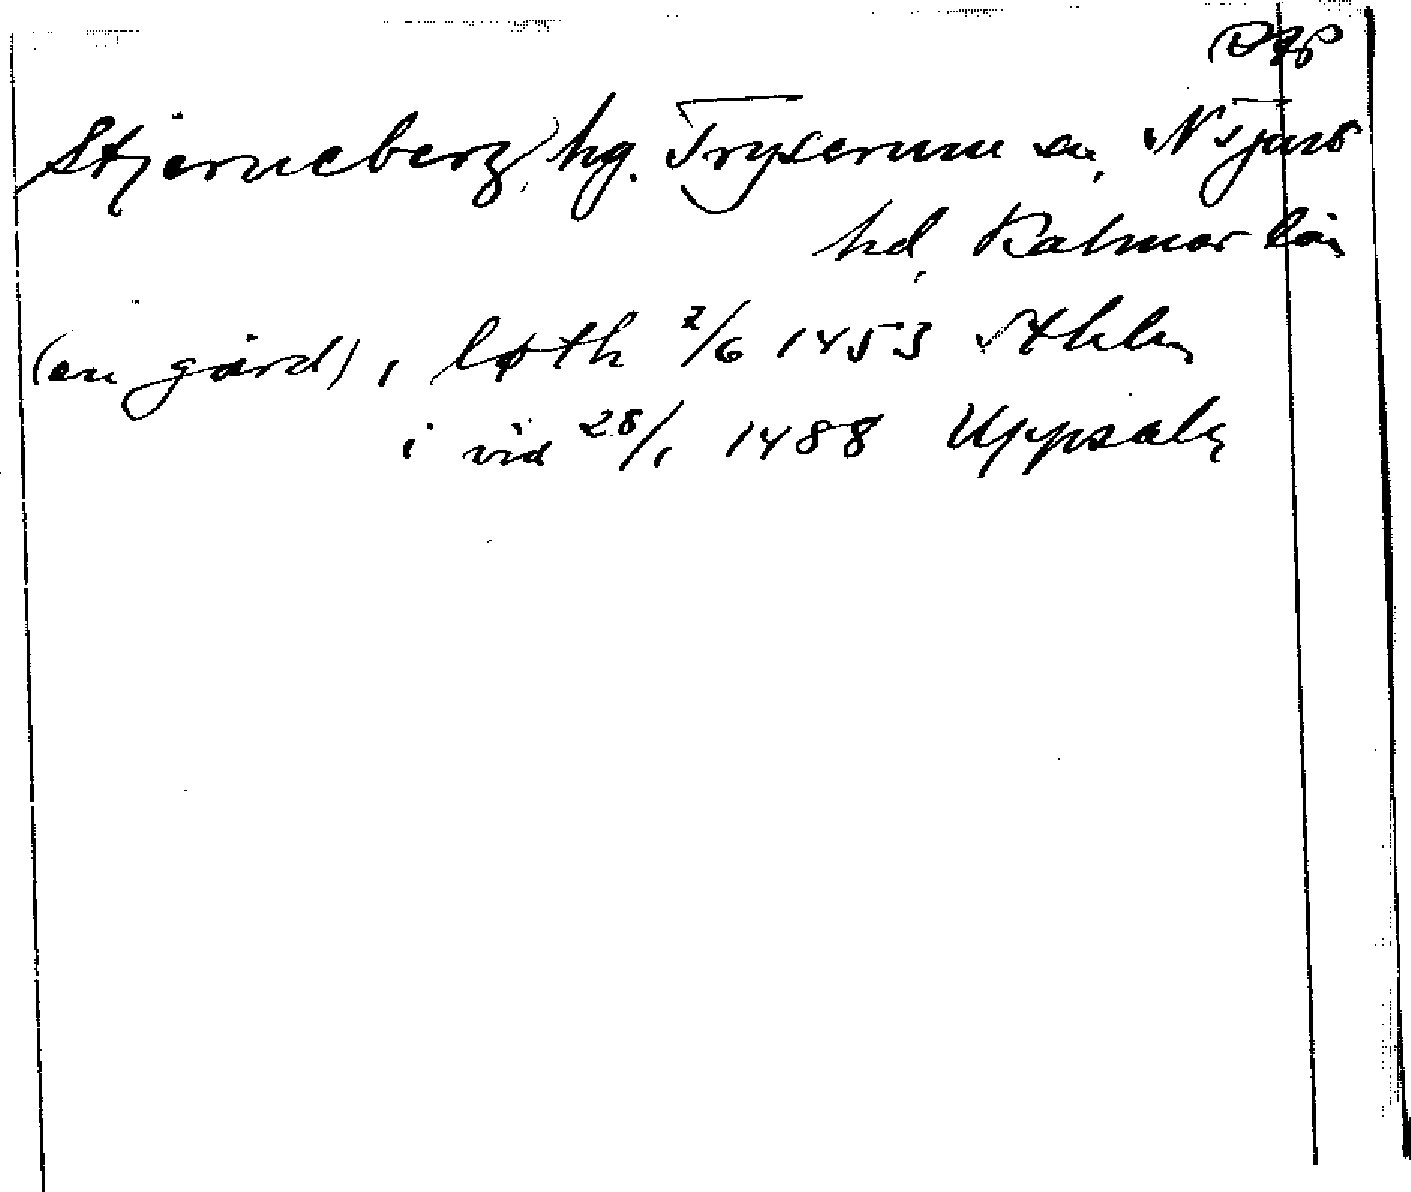 Stjerneberg, hg. Tryserum sn, N Tjust
hd, Kalmar län
(en gård), løth 2/6 1453 Sthlm
i vid 28/1 1488 Uppsala